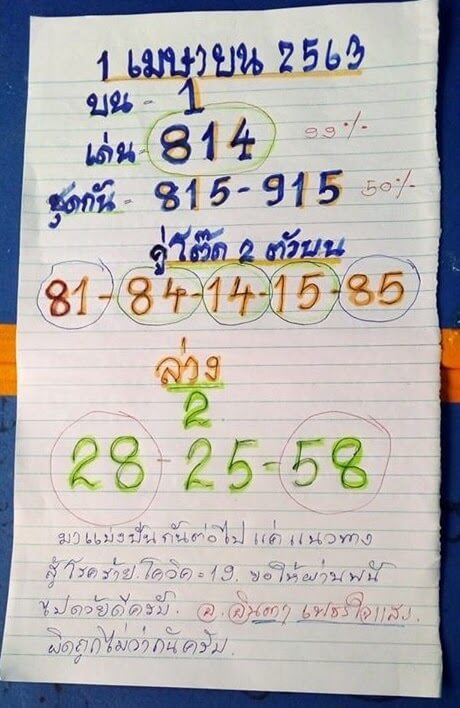 1 เมษายน 2563
บน = 1
เด่น = 814 99%
ชุดกัน = 815-915 50%
คู่โต๊ด 2 ตัวบน
81-84-14-15-85
ล่าง
2
28-25-58
มาแบ่งปันกันต่อไป แค่แนวทาง
สู้โรคร้าย.โควิด=19. ขอให้ผ่านพ้น
ไปด้วยดีครับ. อ.
ผิดถูกไม่ว่ากันครับ.